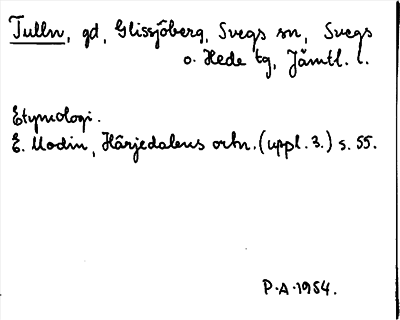 Tulln, gd, Glissjöberg, Svegs sn, Svegs
o. Hede tg, Jämtl. l.
Etymologi.
E. Modin, Härjedalens ortn. (uppl. 3.) s. 55.
P.A.1954.